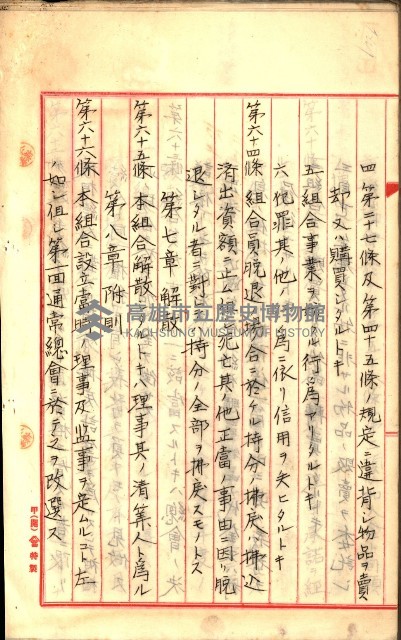 四 第三十七條及第四十五條ノ規定ニ違背シ物品ヲ賣
却又ハ購買シタルトキ
五 組合事業ヲ妨クル行爲アリタルトキ
六 犯罪其ノ他ノ行爲ニ依リ信用ヲ失ヒタルトキ
第六十四條 組合員脱退ノ場合ニ於ケル持分ノ拂戾ハ拂込
濟出資額ニ止ム 死亡其他正當ノ事由ニ因リ脱
退シタル者ニ對シ 持分ノ全部ヲ拂戾スモノトス
第七章 解散
第六十五條 本組合解散 トキハ理事其ノ清算人ト爲ル
第八章 附則
第六十六條 本組合設立當時ノ理事及監事ヲ定ムルコト左
ノ如シ但シ第一回通常總會ニ於テ之ヲ改選ス
高雄市立歷史博物館
KAOHSIUNG MUSEUM OF HISTORY